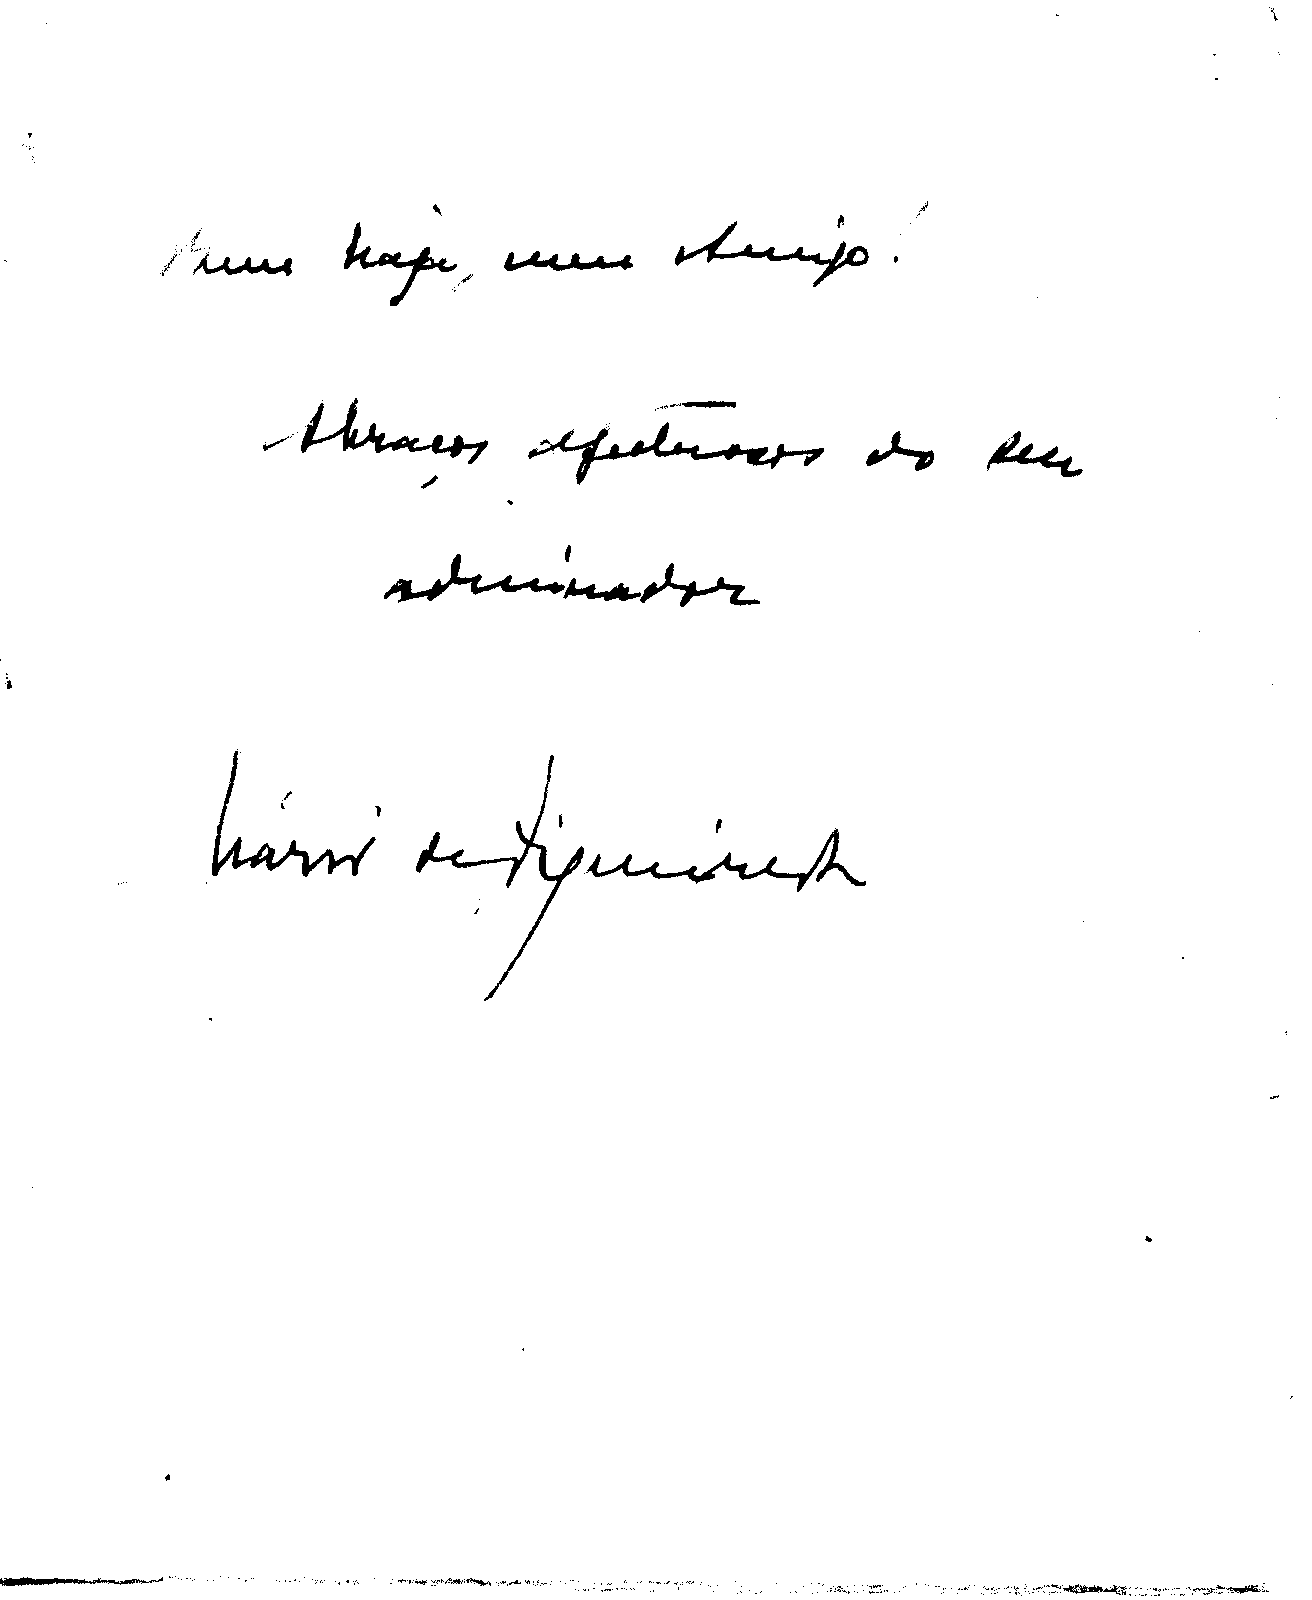 meu Major, meu Amigo!
Abraços afectuosos do seu
admirador
Mário de Figueiredo